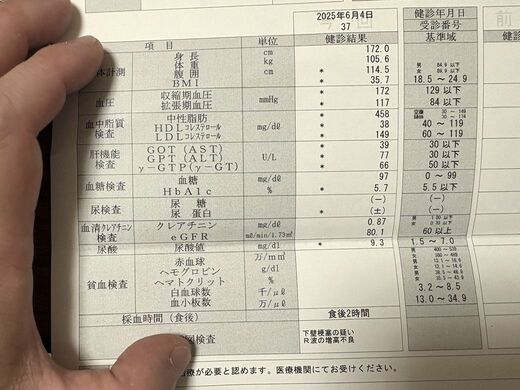 2025年6月4日 健診年月日
37 受診番号 前
項目 単位 健診結果 基準域
体計測 身長 cm 172.0
体重 kg 105.6
腹囲 cm * 114.5 男 84.9 以下 女 89.9 以下
BMI * 35.7 18.5 ~ 24.9
血圧 収縮期血圧 mmHg * 172 129 以下
拡張期血圧 * 117 84 以下
血中脂質検査 中性脂肪 mg/dℓ * 458
HDLコレステロール * 38 40 ~ 119
LDLコレステロール * 149 60 ~ 119
肝機能検査 GOT (AST) U/L * 39 30 以下
GPT (ALT) * 77 30 以下
γ-GTP(γ-GT) * 66 50 以下
血糖検査 血糖 mg/dℓ 97 0 ~ 99
HbA1c % * 5.7 5.5 以下
尿検査 尿糖 (-) (-)
尿蛋白 * (±) (-)
血清クレアチニン検査 クレアチニン mg/dℓ 0.87
eGFR mℓ/min/1.73㎡ 80.1 60 以上
尿酸 尿酸値 mg/dl * 9.3 1.5 ~ 7.0
貧血検査 赤血球 万/m㎥
ヘモグロビン g/dl
ヘマトクリット %
白血球数 千/μℓ 3.2 ~ 8.5
血小板数 万/μℓ 13.0 ~ 34.9
採血時間(食後) 食後2時間
図検査 下壁梗塞の疑い
R波の増高不良
治療が必要と認めます。医療機関にてお受けください。